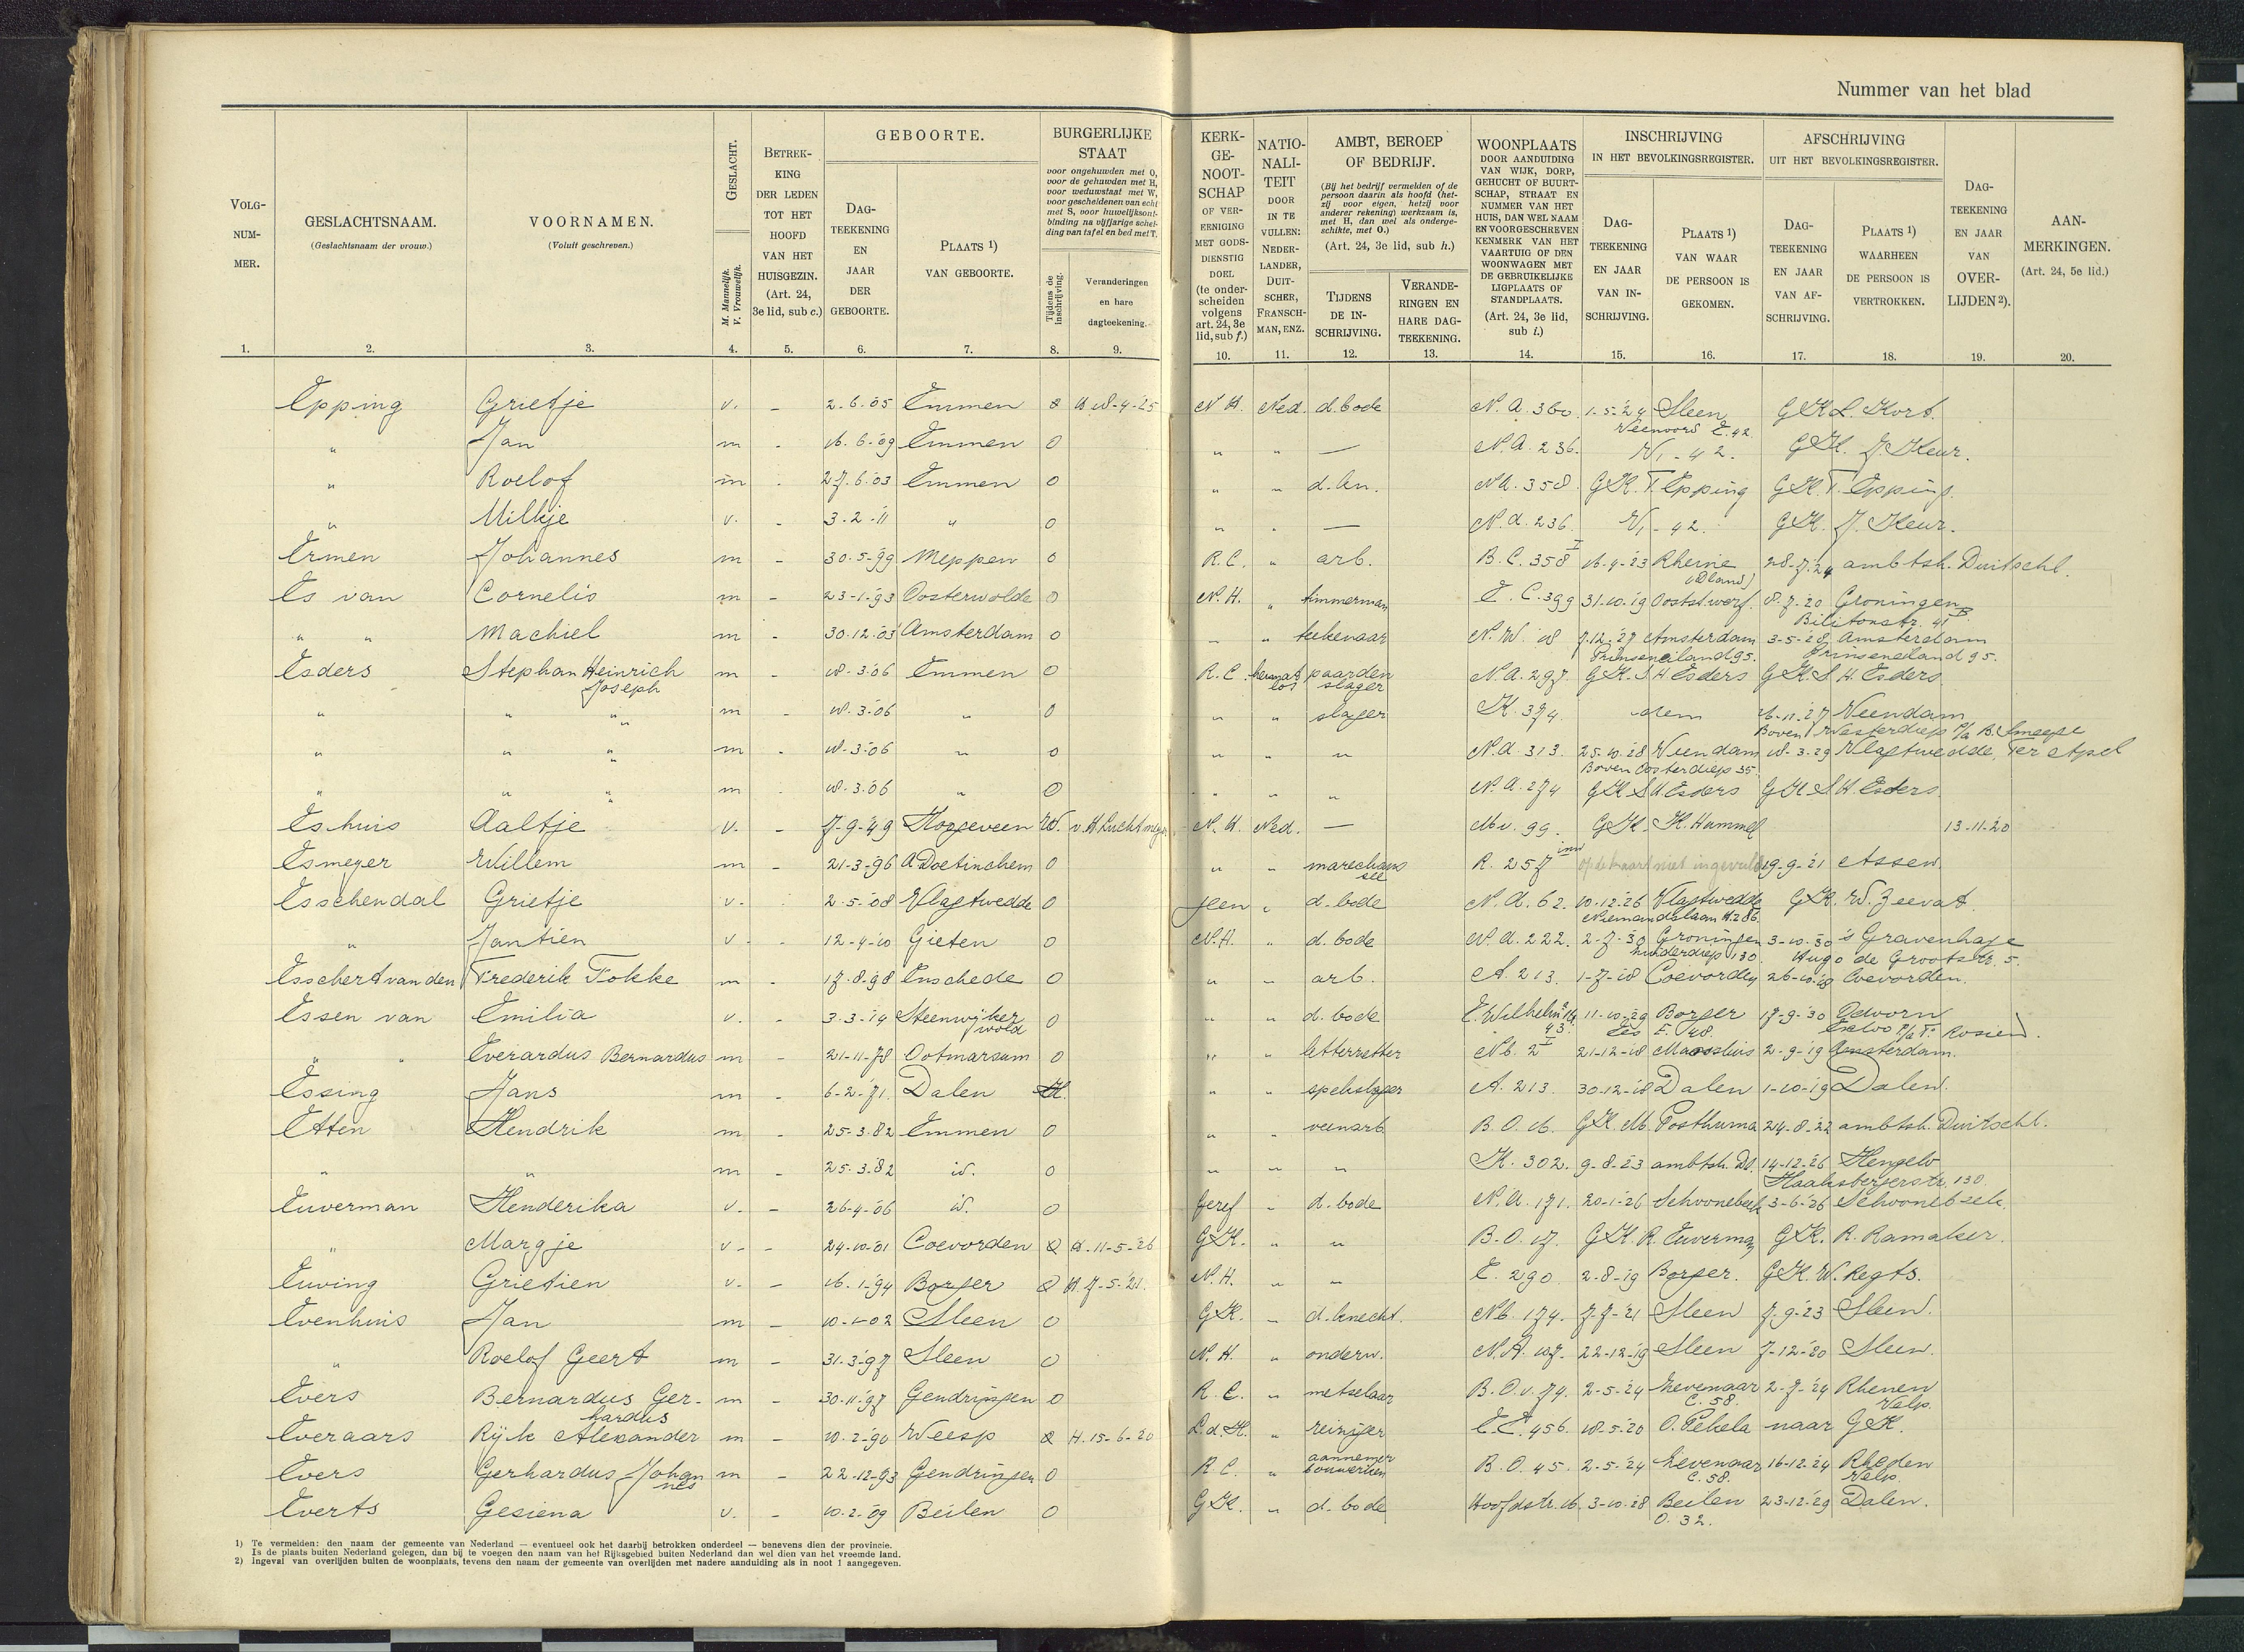 Nummer van het blad
VOLG-NUM-MER.
GESLACHTSNAAM. (Geslachtsnaam der vrouw.)
VOORNAMEN. (Voluit geschreven.)
GESLACHT. M. Mannelijk. V. Vrouwelijk.
BETREK-KING DER LEDEN TOT HET HOOFD VAN HET HUISGEZIN. (Art. 24, 3e lid, sub c.)
GEBOORTE.
DAG-TEEKENING EN JAAR DER GEBOORTE.
PLAATS 1) VAN GEBOORTE.
BURGERLIJKE STAAT
voor ongehuwden met O, voor de gehuwden met H, voor weduwstaat met W, voor gescheidenen van echt met S, voor huwelijksont-binding na vijfjarige schei-ding van tafel en bed met T.
Tijdens de inschrijving.
Veranderingen en hare dagteekening.
KERK-GE-NOOT-SCHAP OF VER-EENIGING MET GODS-DIENSTIG DOEL (te onder-scheiden volgens art. 24, 3e lid, sub f.)
NATIO-NALI-TEIT DOOR IN TE VULLEN: NEDER-LANDER, DUIT-SCHER, FRANSCH-MAN, ENZ.
AMBT, BEROEP OF BEDRIJF.
(Bij het bedrijf vermelden of de persoon daarin als hoofd (het-zij voor eigen, hetzij voor anderer rekening) werkzaam is, met H, dan wel als onderge-schikte, met O.)
(Art. 24, 3e lid, sub h.)
TIJDENS DE IN-SCHRIJVING.
VERANDE-RINGEN EN HARE DAG-TEEKENING.
WOONPLAATS DOOR AANDUIDING VAN WIJK, DORP, GEHUCHT OF BUURT-SCHAP, STRAAT EN NUMMER VAN HET HUIS, DAN WEL NAAM EN VOORGESCHREVEN KENMERK VAN HET VAARTUIG OF DEN WOONWAGEN MET DE GEBRUIKELIJKE LIGPLAATS OF STANDPLAATS. (Art. 24, 3e lid, sub i.)
INSCHRIJVING IN HET BEVOLKINGSREGISTER.
DAG-TEEKENING EN JAAR VAN IN-SCHRIJVING.
PLAATS 1) VAN WAAR DE PERSOON IS GEKOMEN.
AFSCHRIJVING UIT HET BEVOLKINGSREGISTER.
DAG-TEEKENING EN JAAR VAN AF-SCHRIJVING.
PLAATS 1) WAARHEEN DE PERSOON IS VERTROKKEN.
DAG-TEEKENING EN JAAR VAN OVER-LIJDEN 2).
AAN-MERKINGEN. (Art. 24, 5e lid.)
1. 2. 3. 4. 5. 6. 7. 8. 9. 10. 11. 12. 13. 14. 15. 16. 17. 18. 19. 20.
Epping Grietje v. - 2-6-'05 Emmen O H 18-4-25 N.H. Ned. d.bode N.A. 360. 1-5-'24 Sleen Veenoord E.42 GK L. Kort.
" Jan m - 16-6-'09 Emmen O " " — N.A. 236. V1-42. GK. J. Keur.
" Roelof m - 27-6-'03 Emmen O " " d.kn. NA. 358. GK. T. Epping GK. T. Epping.
" Milkje v. - 3-2-'11 " O " " — N.A. 236 V1-42. GK. J. Keur.
Ermen Johannes m - 30-5-'99 Meppen O R.C. " arb. B.C. 358 I 16-4-'23 Rheine (Dland) 28-7-'24 ambtsh. Duitschl.
Es van Cornelis m - 23-1-'93 Oosterwolde O N.H. " timmerman E.C. 399 31-10-'19 Ooststwerf. 8-7-'20 Groningen Bilitonstr. 41 B
" " Machiel m - 30-12-'03 Amsterdam O " " teekenaar N.W. 18 7-12-'27 Amsterdam Prinseneiland 95. 3-5-'28 Amsterdam Prinseneiland 95.
Esders Stephan Heinrich Joseph m - 18-3-'06 Emmen O R.C. heimatlos paardenslager N.A. 297. GK. S H Esders GK. S H. Esders
" " " m - 18-3-'06 " O " " slager K. 374. idem 26-11-'27 Veendam Boven Westerdiep P/a B. Smeepe
" " " m - 18-3-'06 " O " " " N.A. 313. 25-10-'28 Veendam Boven Oosterdiep 35. 18-3-'29 Vlagtwedde, Ter Apel
" " " m - 18-3-'06 " O " " " N.A. 274 GK S H Esders GK S H. Esders.
Eshuis Aaltje v. - 7-9-'49 Hoogeveen W. v. H. Luchtmeyer N.H. Ned. — Mv. 99. GK. K. Hummel 13-11-'20
Esmeyer Willem m - 21-3-'96 A Doetinchem O " " marechaussee R. 257 inw op de kaart niet ingevuld 19-9-'21 Assen.
Esschendal Grietje v. - 2-5-'08 Vlagtwedde O geen " d.bode N.A. 62. 10-12-'26 Vlagtwedde Niemandslaan H.286. GK. W. Zeevat.
" Jantien v. - 12-4-'10 Gieten O N.H. " d.bode N.A. 222. 2-7-'30 Groningen Winderdiep 130. 3-10-'30 's Gravenhage Hugo de Grootstr. 5.
Esschert van den Frederik Fokke m - 17-8-'98 Enschede O " " arb. A. 213. 1-7-'18 Coevorden 26-10-'18 Coevorden.
Essen van Emilia v. - 3-3-'14 Steenwijkerwold O " " d.bode E. Wilhelm. 43 11-10-'29 Borger Ees E. 48. 17-9-'30 Odoorn Exloo P/a T. Rosien.
" " Everardus Bernardus m - 21-11-'78 Ootmarsum O " " letterzetter Nb. 2 I 21-12-'18 Maassluis 2-9-'19 Amsterdam.
Essing Jans m - 6-2-'71. Dalen H. " " spekslager A. 213. 30-12-'18 Dalen 1-10-'19 Dalen.
Etten Hendrik m - 25-3-'82 Emmen O " " veenarb B.O. 16. GK. M. Posthuma 24-8-'22 ambtsh. Duitschl.
" " m - 25-3-'82 id. O " " " K. 302. 9-8-'23 ambtsh. Dl. 14-12-'26 Hengelo Haaksbergerstr. 130.
Euverman Henderika v. - 26-4-'06 id. O geref " d.bode N.A. 171. 20-1-'26 Schoonebeek 3-6-'26 Schoonebeek.
" Margje v. - 24-10-'01 Coevorden O H. 11-5-'26 GK. " " B.O. 17. GK. R. Euverman GK. R. Ramaker.
Euving Grietien v. - 16-1-'94 Borger O H. 7-5-'21. N.H. " " E. 290 2-8-'19 Borger. GK. W. Regts.
Evenhuis Jan m - 10-1-02 Sleen O GK. " d.knecht. Nb. 174. 7-7-'21 Sleen 7-9-'23 Sleen.
" Roelof Geert m - 31-3-'97 Sleen O N.H. " onderw. N.A. 107. 22-12-'19 Sleen 7-12-'20 Sleen.
Evers Bernardus Gerhardus m - 30-11-'97 Gendringen O R.C. " metselaar B.O.v. 74. 2-5-'24 Zevenaar C. 58. 2-7-'24 Rhenen Velp.
Everaars Rijk Alexander m - 10-2-'90 Weesp O H. 15-6-20 L.d.H. " reiniger E.E. 456. 18-5-'20 O. Pekela naar GK.
Evers Gerhardus Johannes m - 22-12-'93 Gendringen O R.C. " aannemer bouwerken B.O. 45. 2-5-'24 Zevenaar C. 58. 16-12-'24 Rheden Velp.
Everts Gesiena v. - 10-2-'09 Beilen O GK. " d.bode Hoofdstr. 16. 3-10-'28 Beilen O. 32. 23-12-'29 Dalen.
1) Te vermelden: den naam der gemeente van Nederland — eventueel ook het daarbij betrokken onderdeel — benevens dien der provincie.
Is de plaats buiten Nederland gelegen, dan bij te voegen den naam van het Rijksgebied buiten Nederland dan wel dien van het vreemde land.
2) Ingeval van overlijden buiten de woonplaats, tevens den naam der gemeente van overlijden met nadere aanduiding als in noot 1 aangegeven.